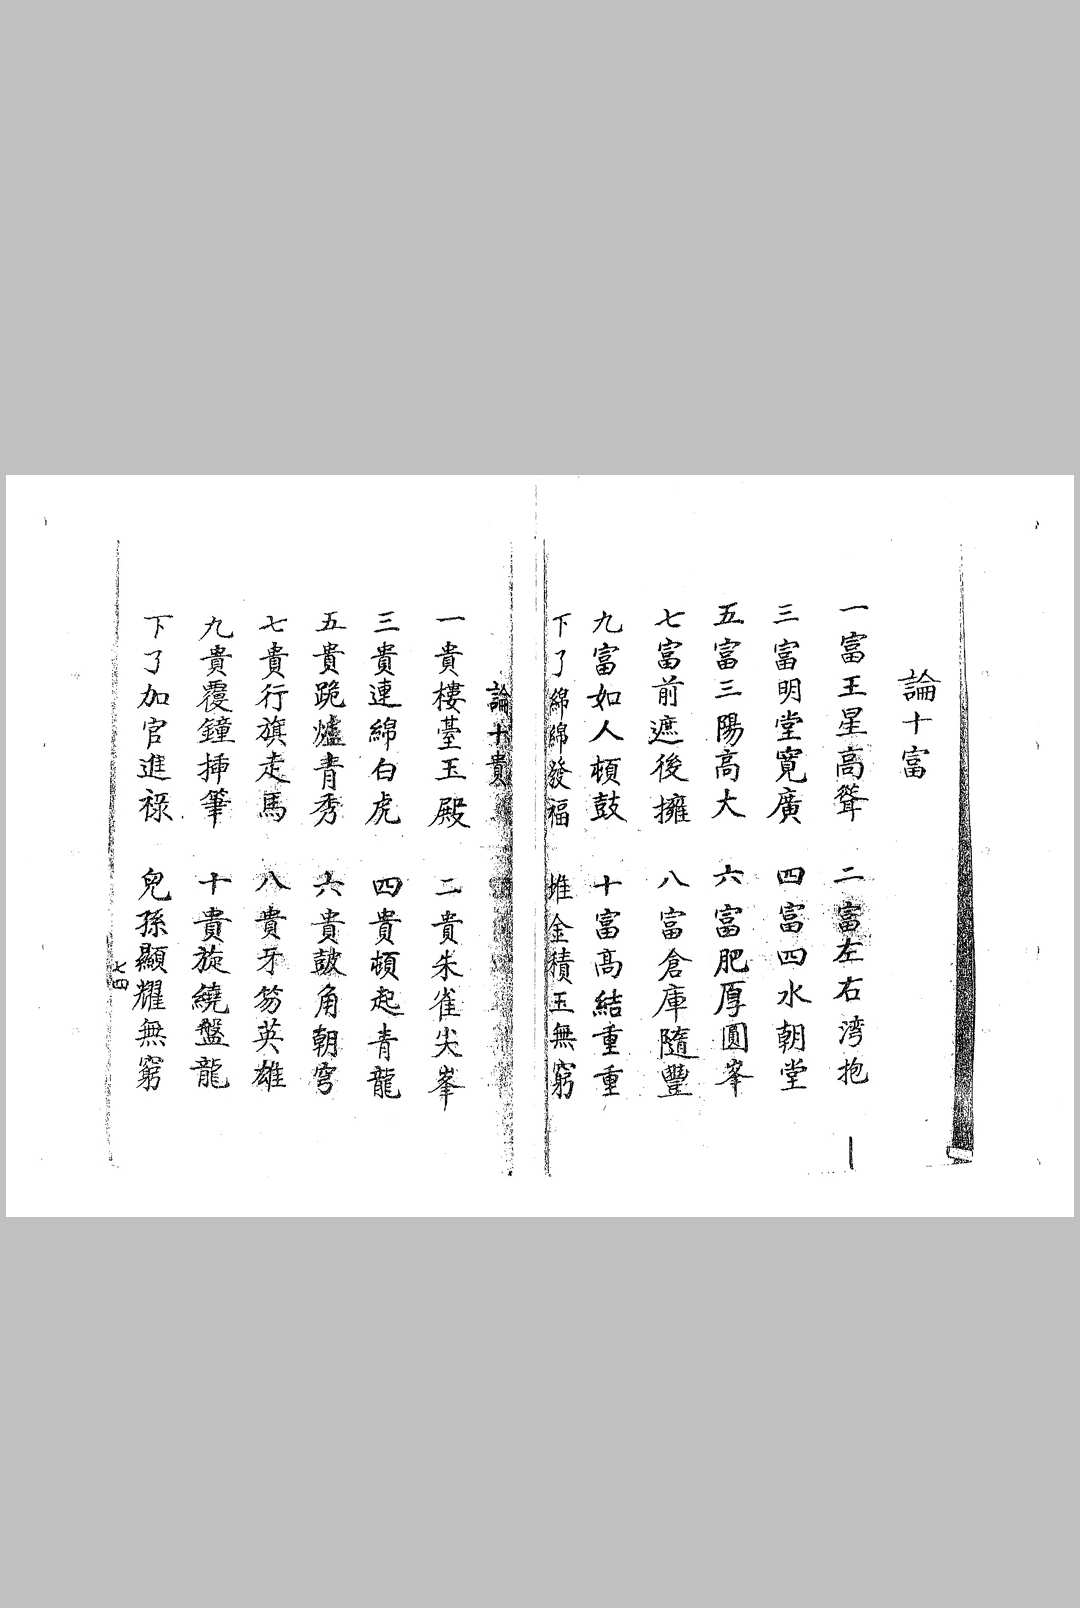 論十富
一富玉星高聳　二富左右湾抱
三富明堂寛廣　四富四水朝堂
五富三陽高大　六富肥厚圓峯
七富前遮後擁　八富倉庫隨豐
九富如人頓鼓　十富高結重重
下了綿綿發福　堆金積玉無窮
論十貴
一貴樓臺玉殿　二貴朱雀尖峯
三貴連綿白虎　四貴頓起青龍
五貴跪爐青秀　六貴鼓角朝穹
七貴行旗走馬　八貴牙笏英雄
九貴覆鐘挿筆　十貴旋繞盤龍
下了加官進禄　兒孫顯耀無窮
七四